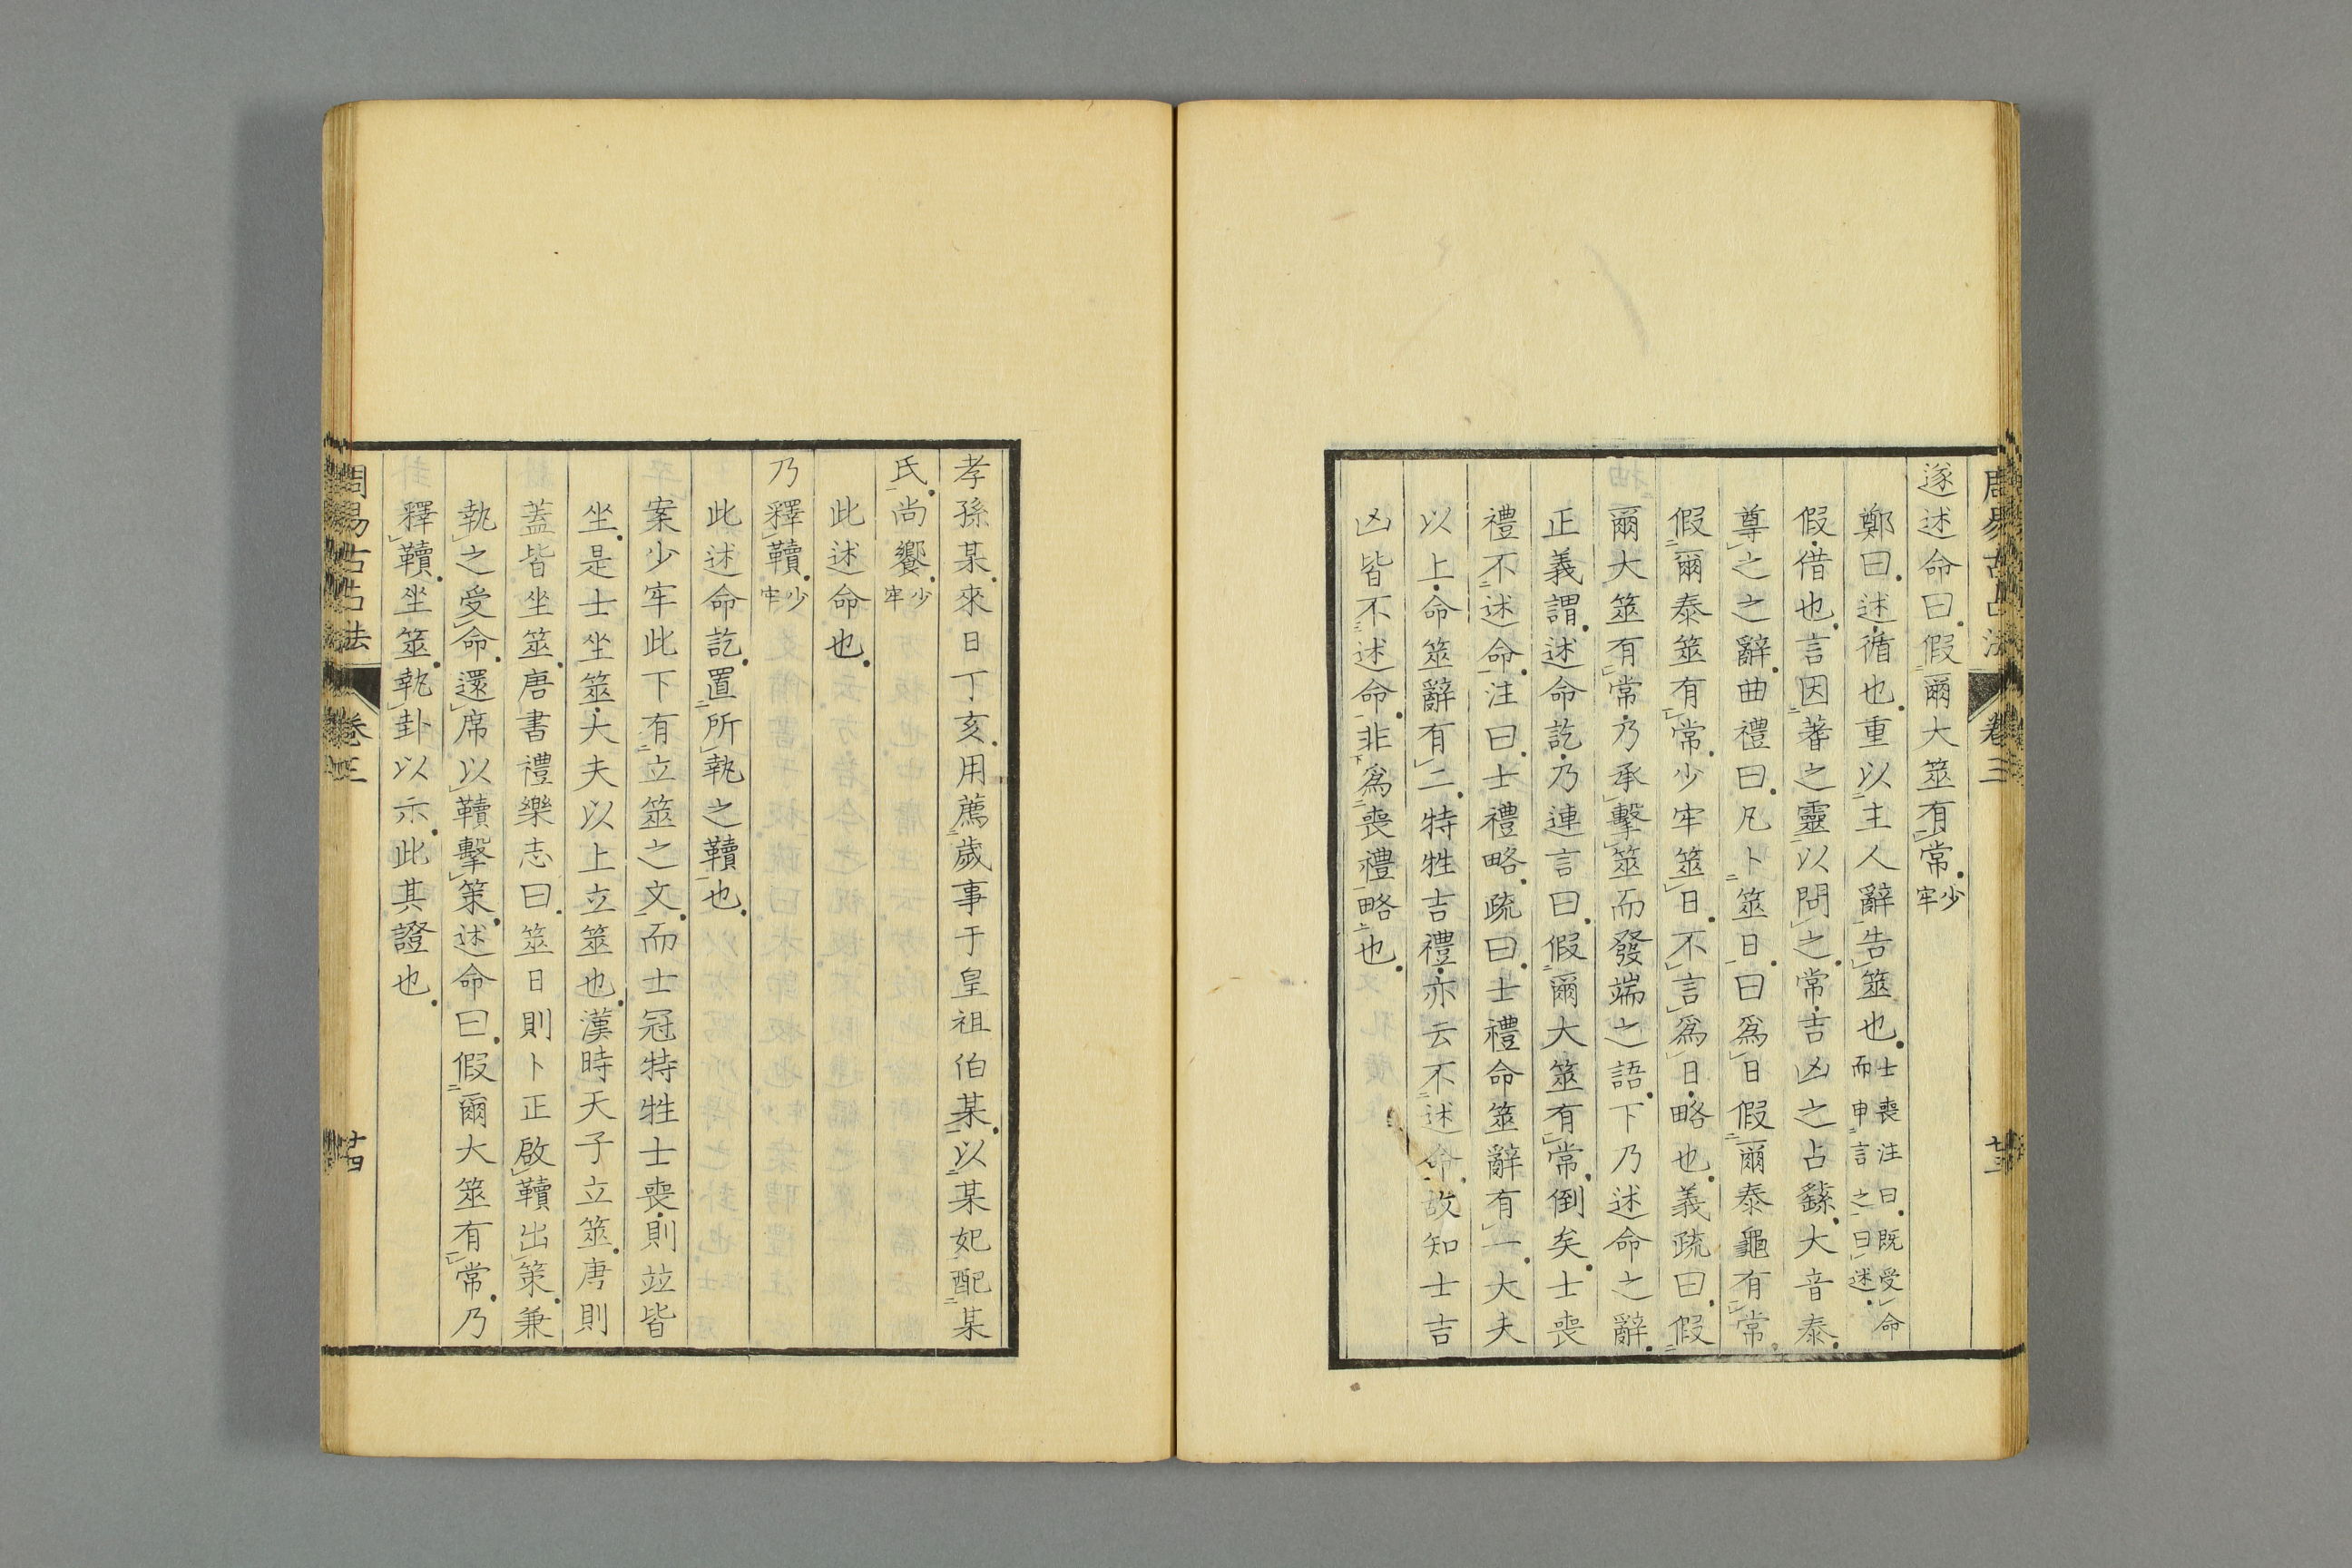 遂述命曰。假爾大筮有常。少牢
鄭曰。述循也。重以主人辭告筮也。士喪注曰。既受命而申言之曰述。
假借也。言因蓍之靈以問之。常吉凶之占繇。大音泰。
尊之之辭。曲禮曰。凡卜筮日。曰爲日假爾泰龜有常。
假爾泰筮有常。少牢筮日。不言爲日略也。義疏曰。假
爾大筮有常。乃承擊筮而發端之語。下乃述命之辭。
正義謂。述命訖。乃連言曰。假爾大筮有常。倒矣。士喪
禮不述命。注曰。士禮略。疏曰。士禮命筮辭有一。大夫
以上。命筮辭有二。特牲吉禮。亦云不述命。故知士吉
凶皆不述命。非爲喪禮略也。
周易古占法 卷三 廿三
孝孫某。來日丁亥。用薦歲事于皇祖伯某。以某妃配某
氏。尚饗。少牢
此述命也。
乃釋韇。少牢
此述命訖。置所執之韇也。
案少牢此下有立筮之文。而士冠特牲士喪。則竝皆
坐。是士坐筮。大夫以上立筮也。漢時天子立筮。唐則
蓋皆坐筮。唐書禮樂志曰。筮日則卜正啟韇出策。兼
執之受命。還席以韇擊策。述命曰。假爾大筮有常。乃
釋韇。坐筮。執卦以示。此其證也。
周易古占法 卷三 廿四